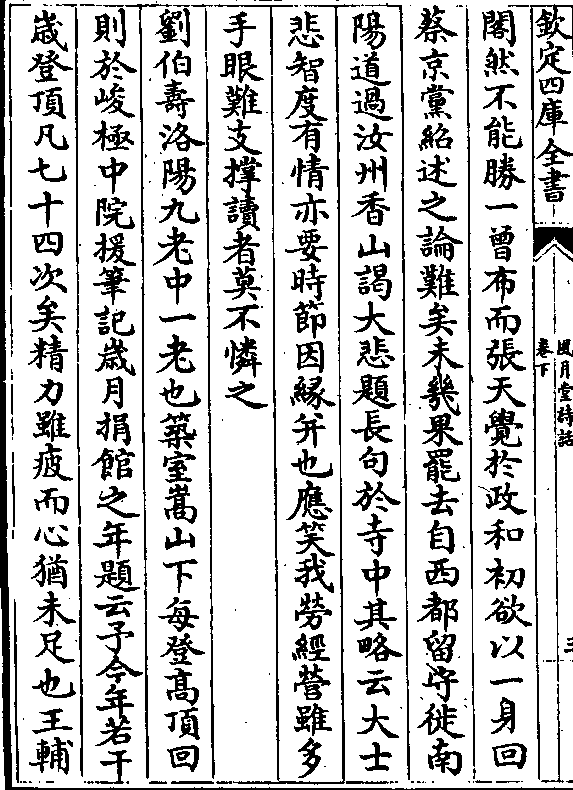 欽定四庫全書
風月堂詩話
卷下
三
闍然不能勝一曾布而張天覺於政和初欲以一身回
蔡京黨紹述之論難矣未幾果罷去自西都留守徙南
陽道過汝州香山謁大悲題長句於寺中其略云大士
悲智度有情亦要時節因縁并也應笑我勞經營雖多
手眼難支撑讀者莫不憐之
劉伯壽洛陽九老中一老也築室嵩山下每登髙頂回
則於峻極中院援筆記歳月捐館之年題云予今年若干
歳登頂凡七十四次矣精力雖疲而心猶未足也王輔